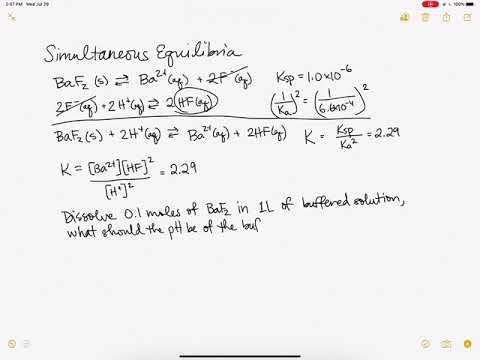 2:07 PM Wed Jul 29
Simultaneous Equilibria
BaF₂(s) ⇄ Ba²⁺(aq) + 2F⁻(aq) Ksp = 1.0×10⁻⁶
2F⁻(aq) + 2H⁺(aq) ⇄ 2HF(aq) (1/Ka)² = (1/6.6×10⁻⁴)²
BaF₂(s) + 2H⁺(aq) ⇄ Ba²⁺(aq) + 2HF(aq) K = Ksp/Ka² = 2.29
K = [Ba²⁺][HF]²/[H⁺]² = 2.29
Dissolve 0.1 moles of BaF₂ in 1L of buffered solution,
what should the pH be of the buf